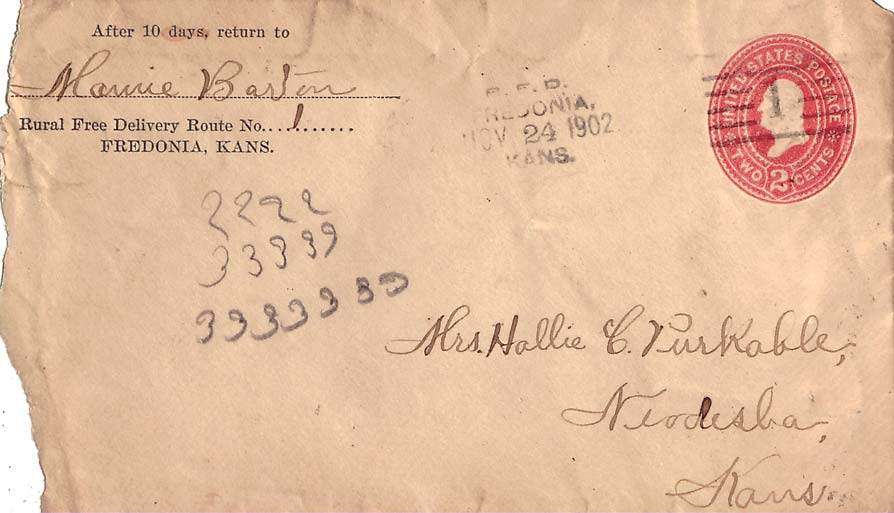 After 10 days, return to
Mamie Barton
Rural Free Delivery Route No....1......
FREDONIA, KANS.
R. F. D.
FREDONIA,
NOV 24 1902
KANS.
UNITED STATES POSTAGE
1
TWO 2 CENTS
2222
33339
3333333
Mrs. Hallie C. Purkable,
Neodesha,
Kans.